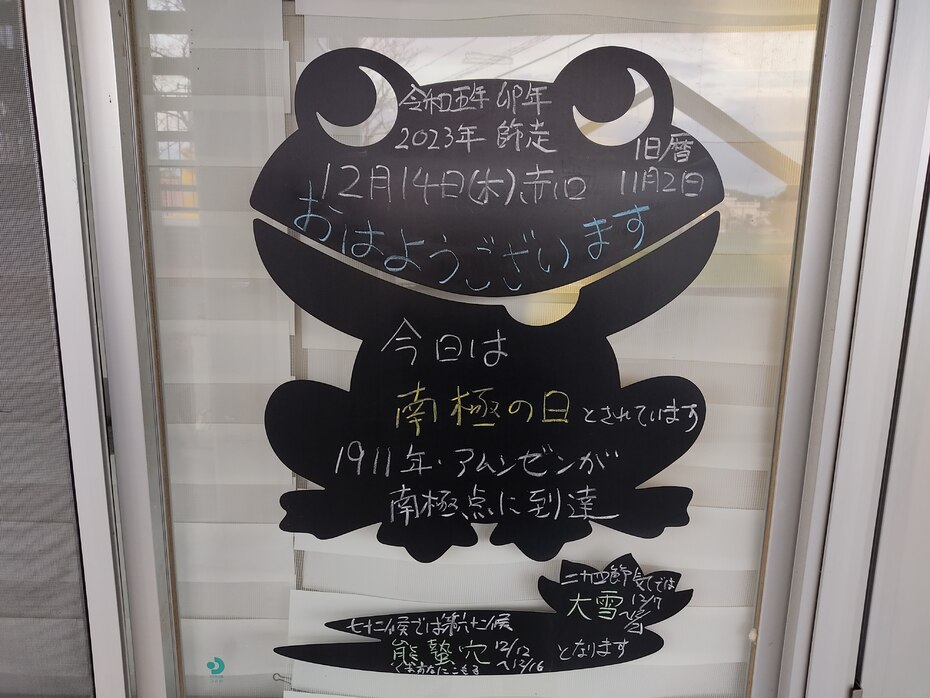 令和五年 卯年
2023年 師走
旧暦
12月14日(木)赤口 11月2日
おはようございます
今日は
南極の日とされています
1911年・アムンゼンが
南極点に到達
二十四節気では
大雪 12/7
七十二候では第六十二候
熊蟄穴 12/12
～12/16
くまあなにこもる
となります